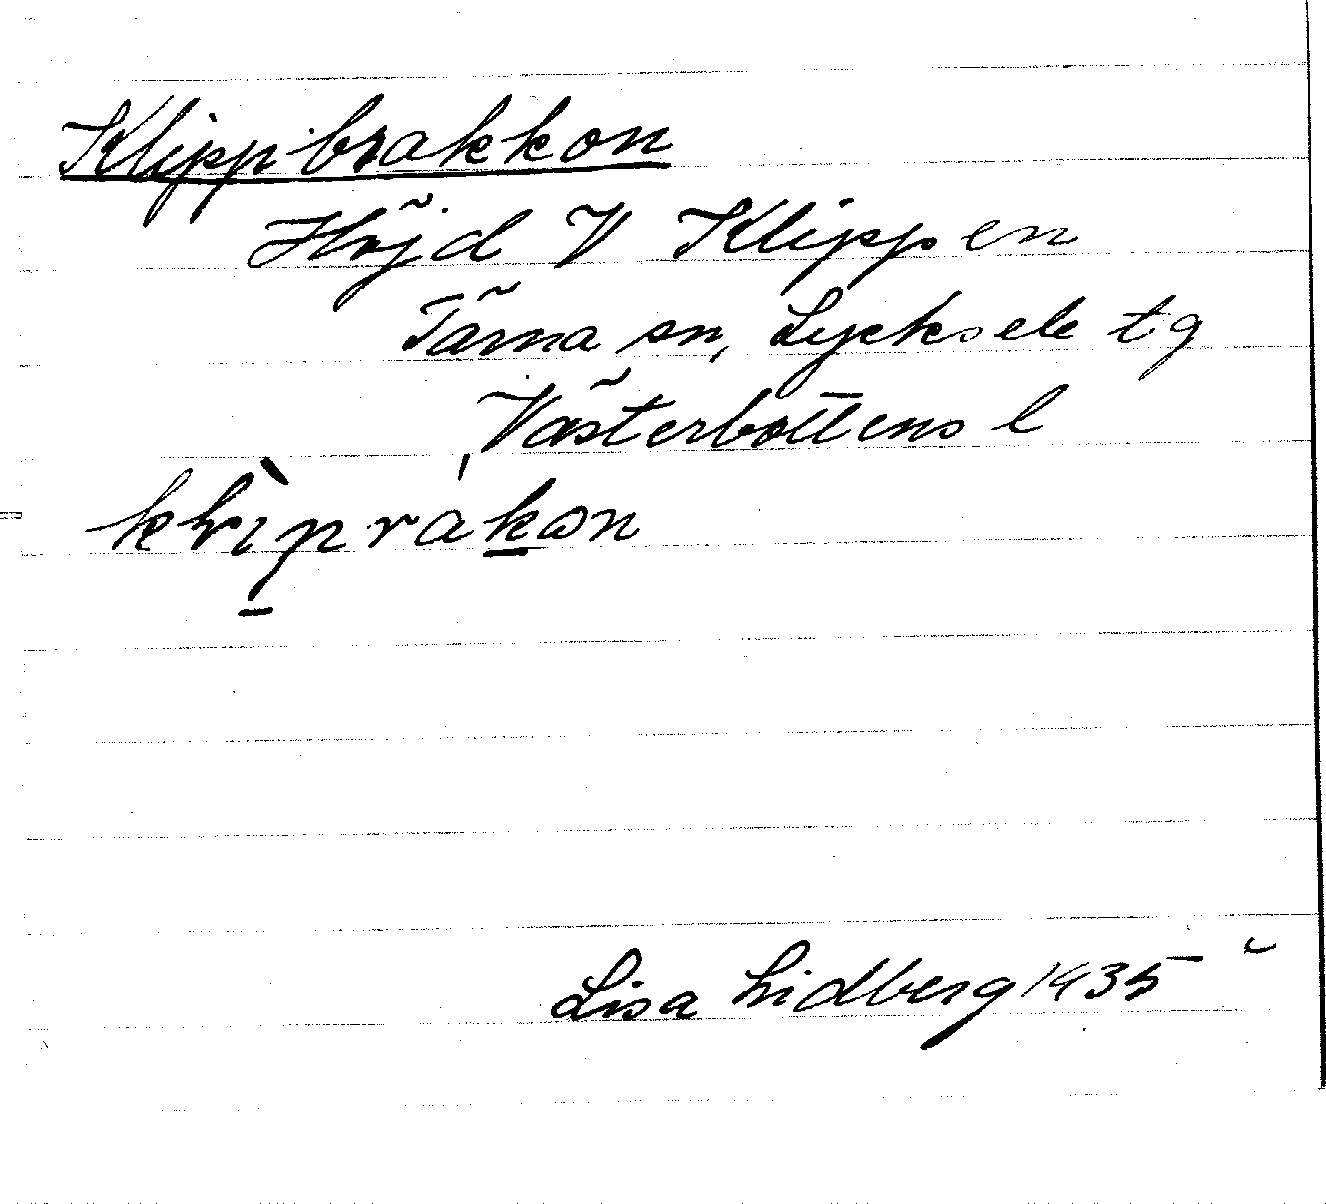 Klippbrakkon
Höjd V Klippen
Tärna sn, Lycksele tg
Västerbottens l
Lisa Lidberg 1935